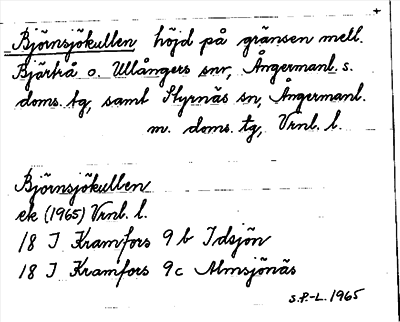 Björnsjökullen höjd på gränsen mell.
Bjärtrå o. Ullångers snr, Ångermanl. s.
doms. tg, samt Styrnäs sn, Ångermanl.
m. doms. tg, Vrnl. l.
Björnsjökullen
ek (1965) Vrnl. l.
18 I Kramfors 9 b Idsjön
18 I Kramfors 9 c Almsjönäs
S.P.-L. 1965